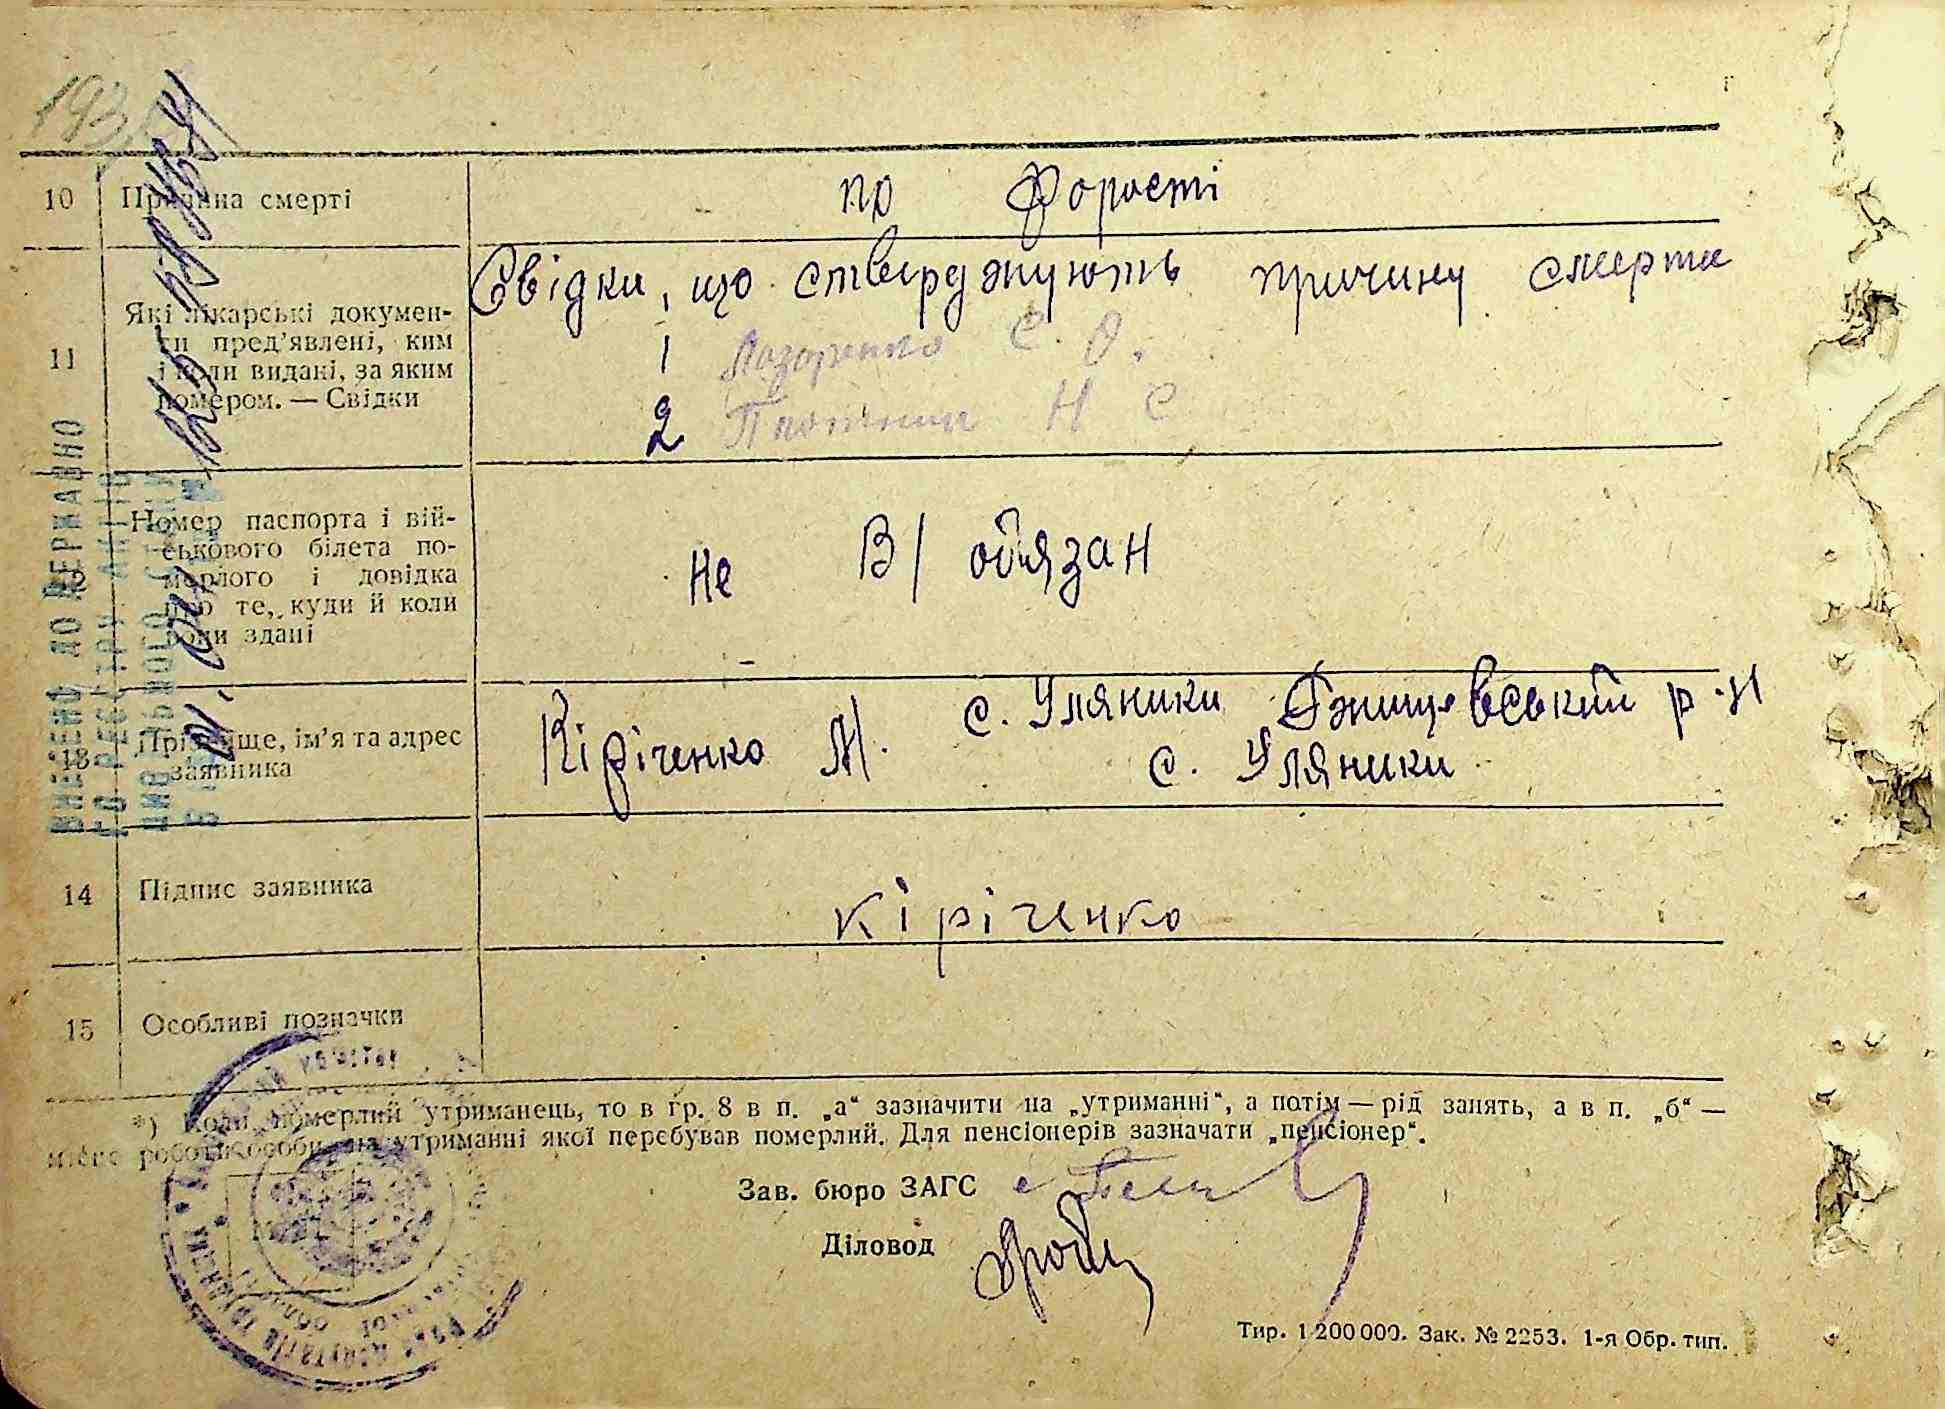 10 Причина смерті по форості
Свідки, що стверджують причину смерти
11 Які лікарські докумен-
ти пред’явлені, ким
і коли видані, за яким
номером. — Свідки
1 Лазоренко С. О.
2 Н С
12 Номер паспорта і вій-
ськового білета по-
мерлого і довідка
про те, куди й коли
вони здані
не В/ обязан
13 Прізвище, ім’я та адрес
заявника
Кіріченко М. с. Уляники Ржищевський р-н
с. Уляники
14 Підпис заявника Кіріченко
15 Особливі позначки
*) Коли померлий утриманець, то в гр. 8 в п. „а“ зазначити на „утриманні“, а потім — рід занять, а в п. „б“ —
місце роботи особи, на утриманні якої перебував померлий. Для пенсіонерів зазначати „пенсіонер“.
Зав. бюро ЗАГС
Діловод
Тир. 1 200 000. Зак. № 2253. 1-я Обр. тип.
ВНЕСЕНО ДО ДЕРЖАВНО
ГО РЕЄСТРУ АКТІВ
ЦИВІЛЬНОГО СТАНУ